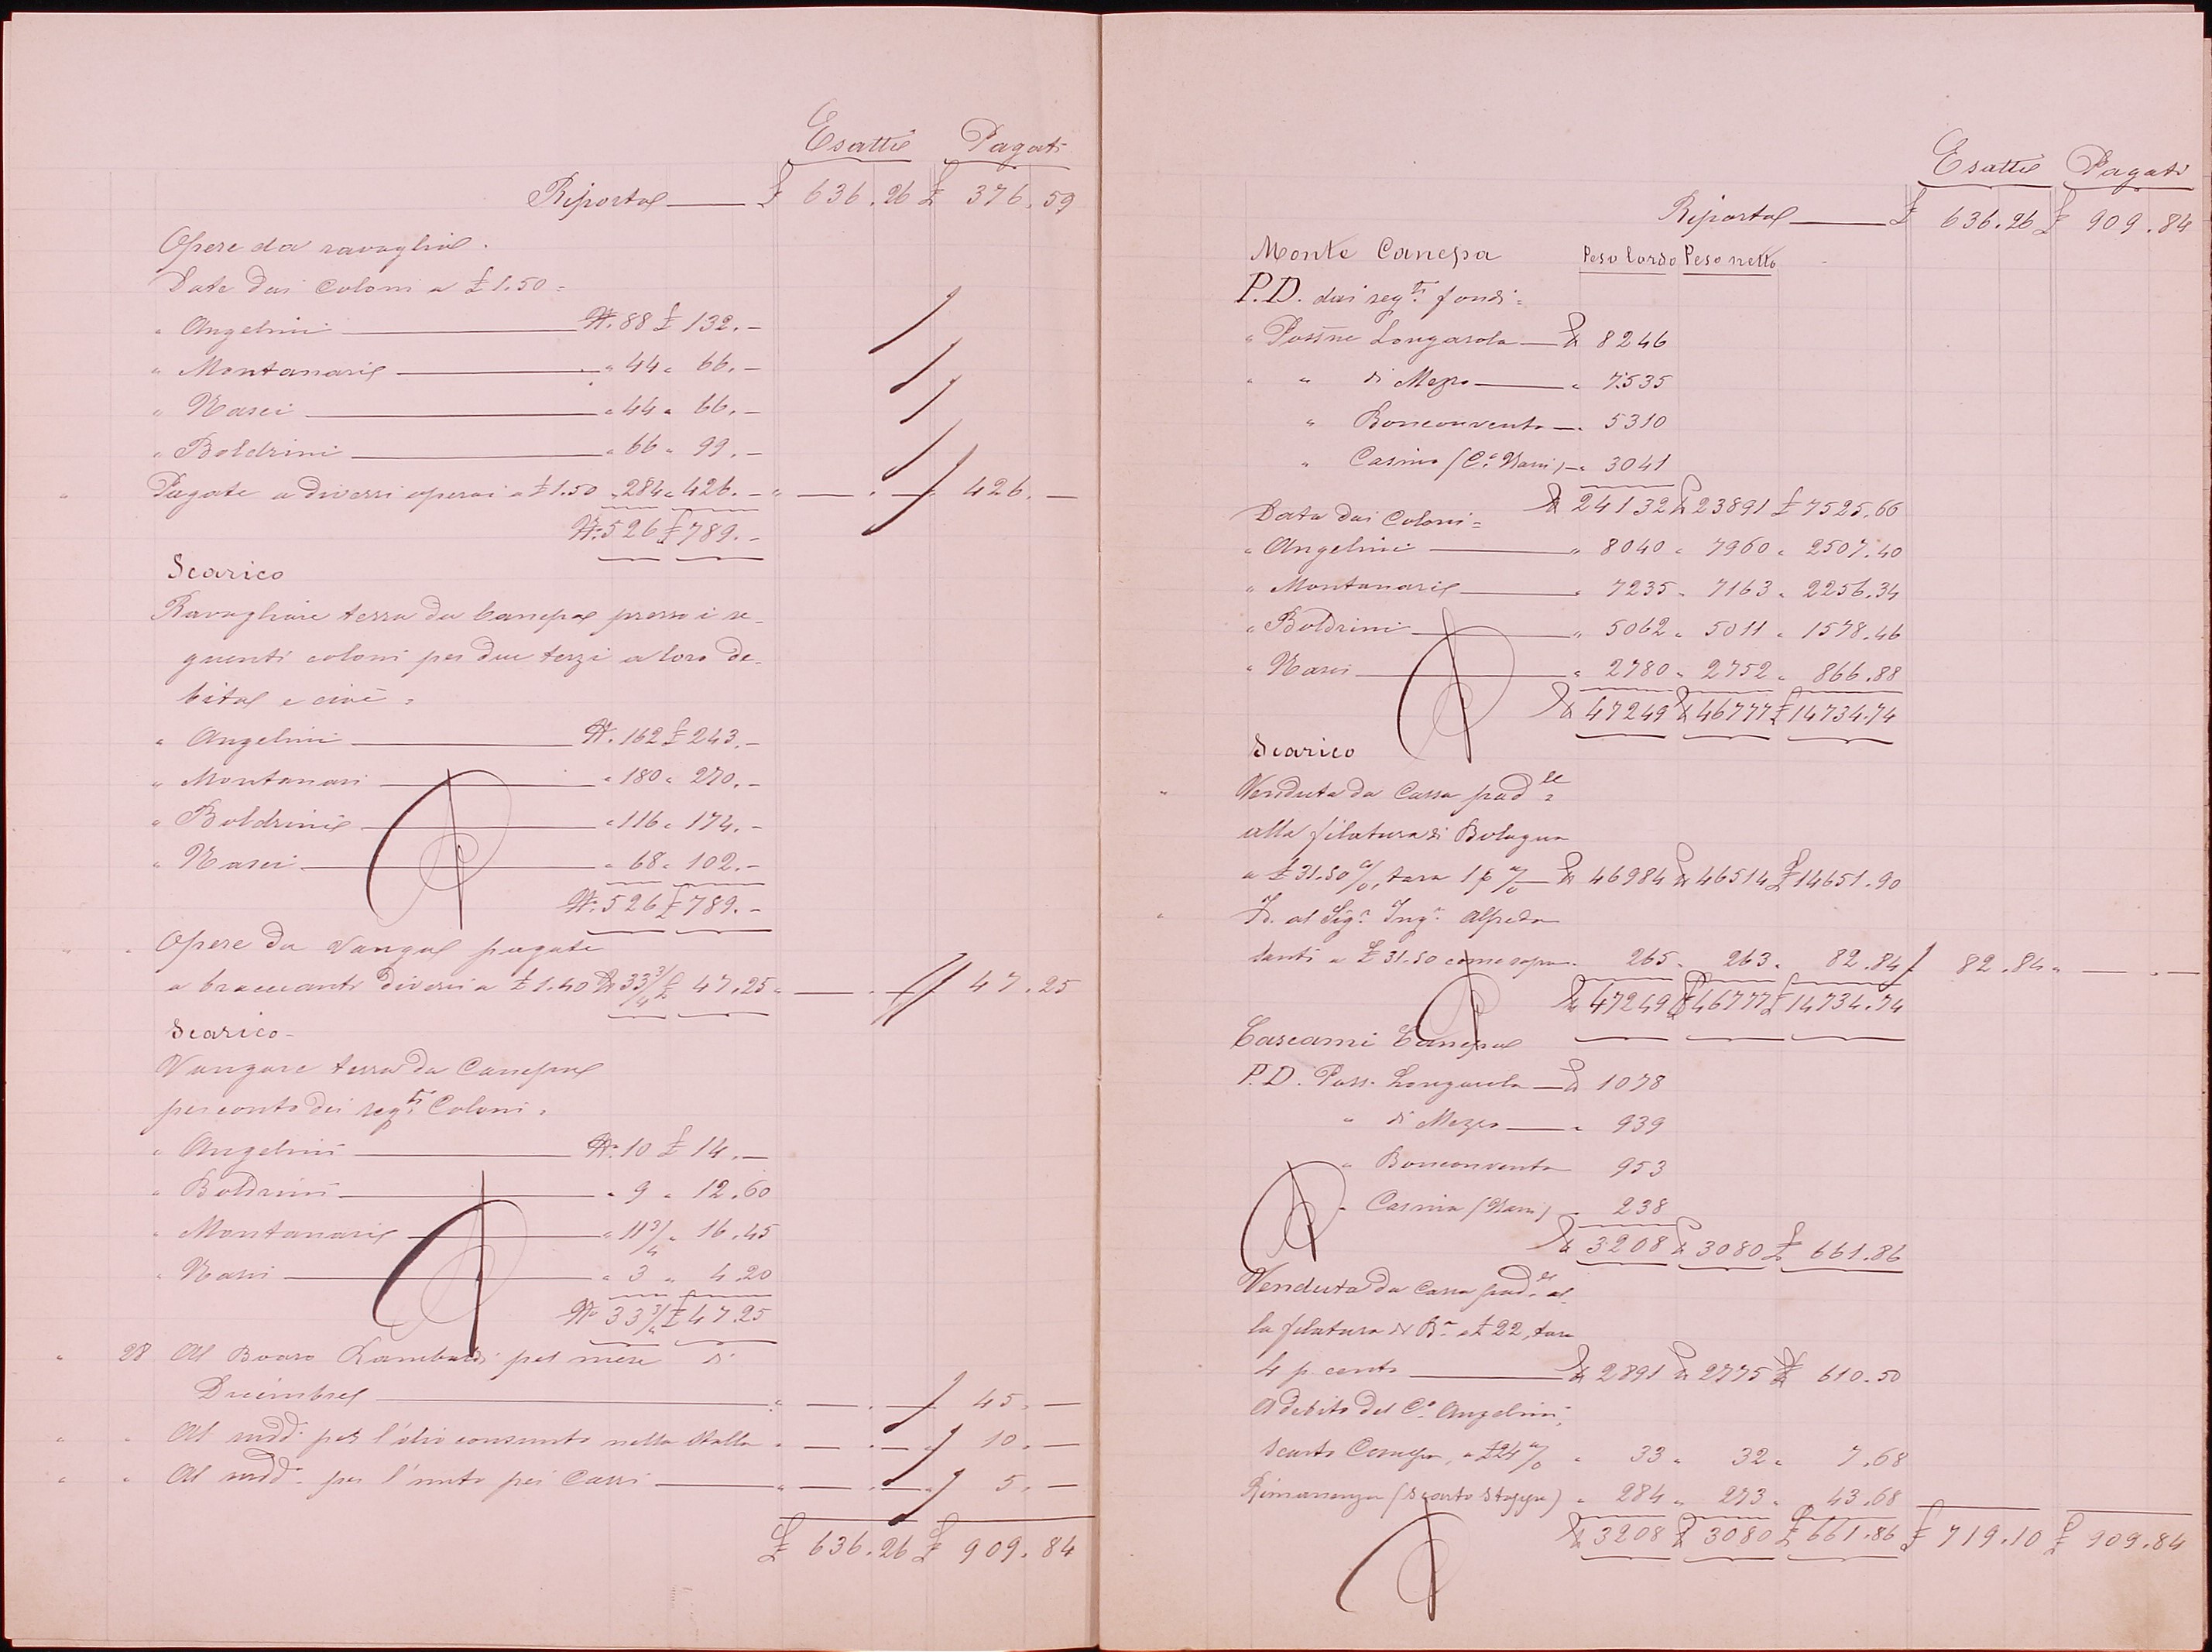 Esatte Pagati
Riporto £ 636.26 £ 376.59
Opere da ravaglio.
Date dai Coloni a £ 1.50 =
" Angelini N. 88 £ 132.—
" Montanari " 44 " 66.—
" Nasci " 44 " 66.—
" Boldrini " 66 " 99.—
" Pagate a diversi operai a £ 1.50 " 284 " 426.— " — . — " 426.—
N. 526 £ 789.—
Scarico
Ravagliare terra da Canepa presso i se-
guenti coloni per due terzi a loro de-
bito e cioè =
" Angelini N. 162 £ 243.—
" Montanari " 180 " 270.—
" Boldrini " 116 " 174.—
" Nasci " 68 " 102.—
N. 526 £ 789.—
" " Opere da Vanga pagate
a braccianti diversi a £ 1.40 N. 33 3/4 £ 47.25 " — . — " 47.25
Scarico -
Vangare terra da Canepa
per conto dei seg.ti Coloni =
" Angelini N. 10 £ 14.—
" Boldrini " 9 " 12.60
" Montanari " 11 3/4 " 16.45
" Nasci " 3 " 4.20
N. 33 3/4 £ 47.25
" 28 Al Boaro Rambaldi pel mese di
Dicembre " — . — " 45.—
" " Al sudd. per l'olio consunto nella Stalla " — . — " 10.—
" " Al sudd. per l'unto pei Carri " — . — " 5.—
£ 636.26 £ 909.84
Esatte Pagati
Riporto £ 636.26 £ 909.84
Monte Canepa Peso lordo Peso netto
P.D. dai seg.ti fondi =
" Poss.ne Longarola 8246
" " di Mezzo " 7535
" Bonconvento " 5310
" Casino (C.o Nasci) " 3041
24132 23891 £ 7525.66
Data dai Coloni =
" Angelini " 8040 " 7960 " 2507.40
" Montanari " 7235 " 7163 " 2256.34
" Boldrini " 5062 " 5011 " 1578.46
" Nasci " 2780 " 2752 " 866.88
47249 46777 £ 14734.74
Scarico
" Venduta da Cassa pad.le
alla filatura di Bologna
a £ 31.50 %, tara 1 p % 46984 46514 £ 14651.90
" Id. al Sig.r Ing.r Alfredo
Santi a £ 31.50 come sopra " 265 " 263 " 82.84 £ 82.84 " — . —
47249 46777 £ 14734.74
Cascami Canepa
P.D. Poss. Longarola 1078
" di Mezzo " 939
" Bonconvento 953
" Casino (Nasci) " 238
3208 3080 £ 661.86
Venduta da Cassa pad.le al-
la filatura di B.a a £ 22, tara
4 p cento 2891 2775 £ 610.50
A debito del C.o Angelini,
Scarto Canepa, a £ 24 % " 33 " 32 " 7.68
Rimanenza (Scarto Stoppa) " 284 " 273 " 43.68
3208 3080 £ 661.86 £ 719.10 £ 909.84